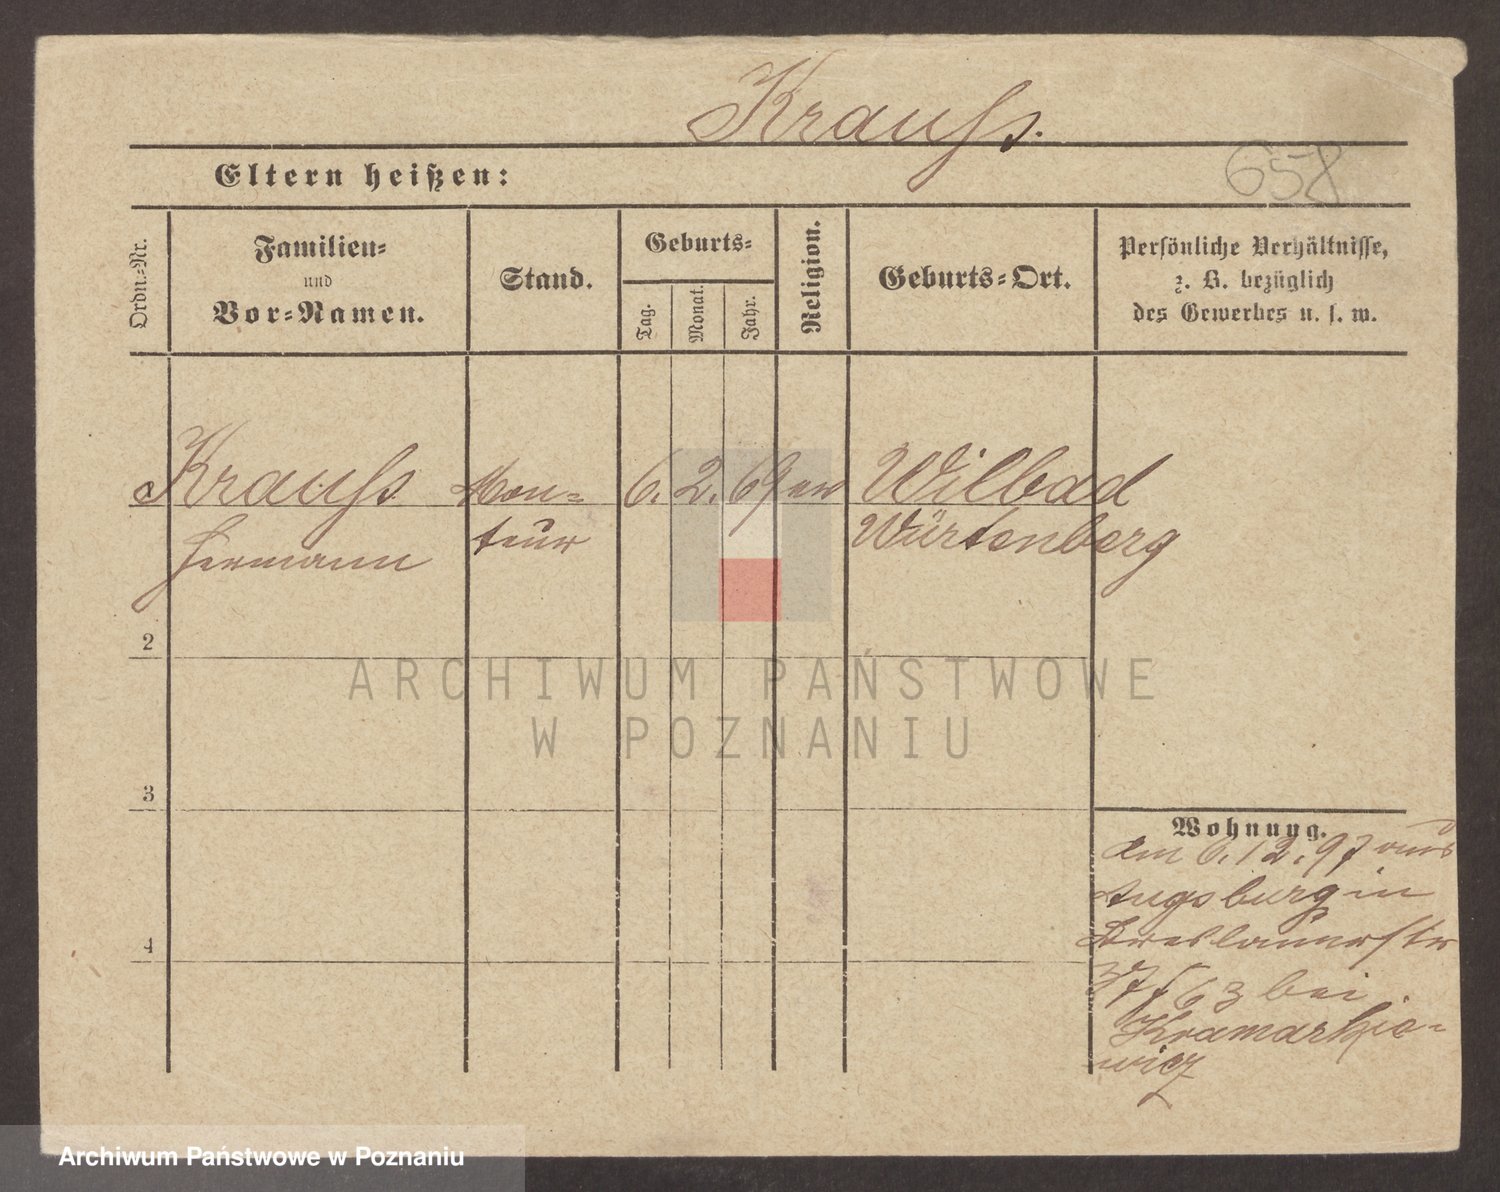 Krauſs.
658
Eltern heißen:
Ordn.=Nr.
Familien=
und
Vor=Namen.
Stand.
Geburts=
Tag.
Monat.
Jahr.
Religion.
Geburts=Ort.
Persönliche Verhältnisse,
z. B. bezüglich
des Gewerbes u. s. w.
Krauſs Mon= 6. 2. 69 ev Wilbad
Hermann teur Würtenberg
2
ARCHIWUM PAŃSTWOWE
W POZNANIU
3
Wohnung.
am 6. 12. 97 aus
Augsburg in
Breslauerstr
bei
Kramarkie=
wicz
4
Archiwum Państwowe w Poznaniu